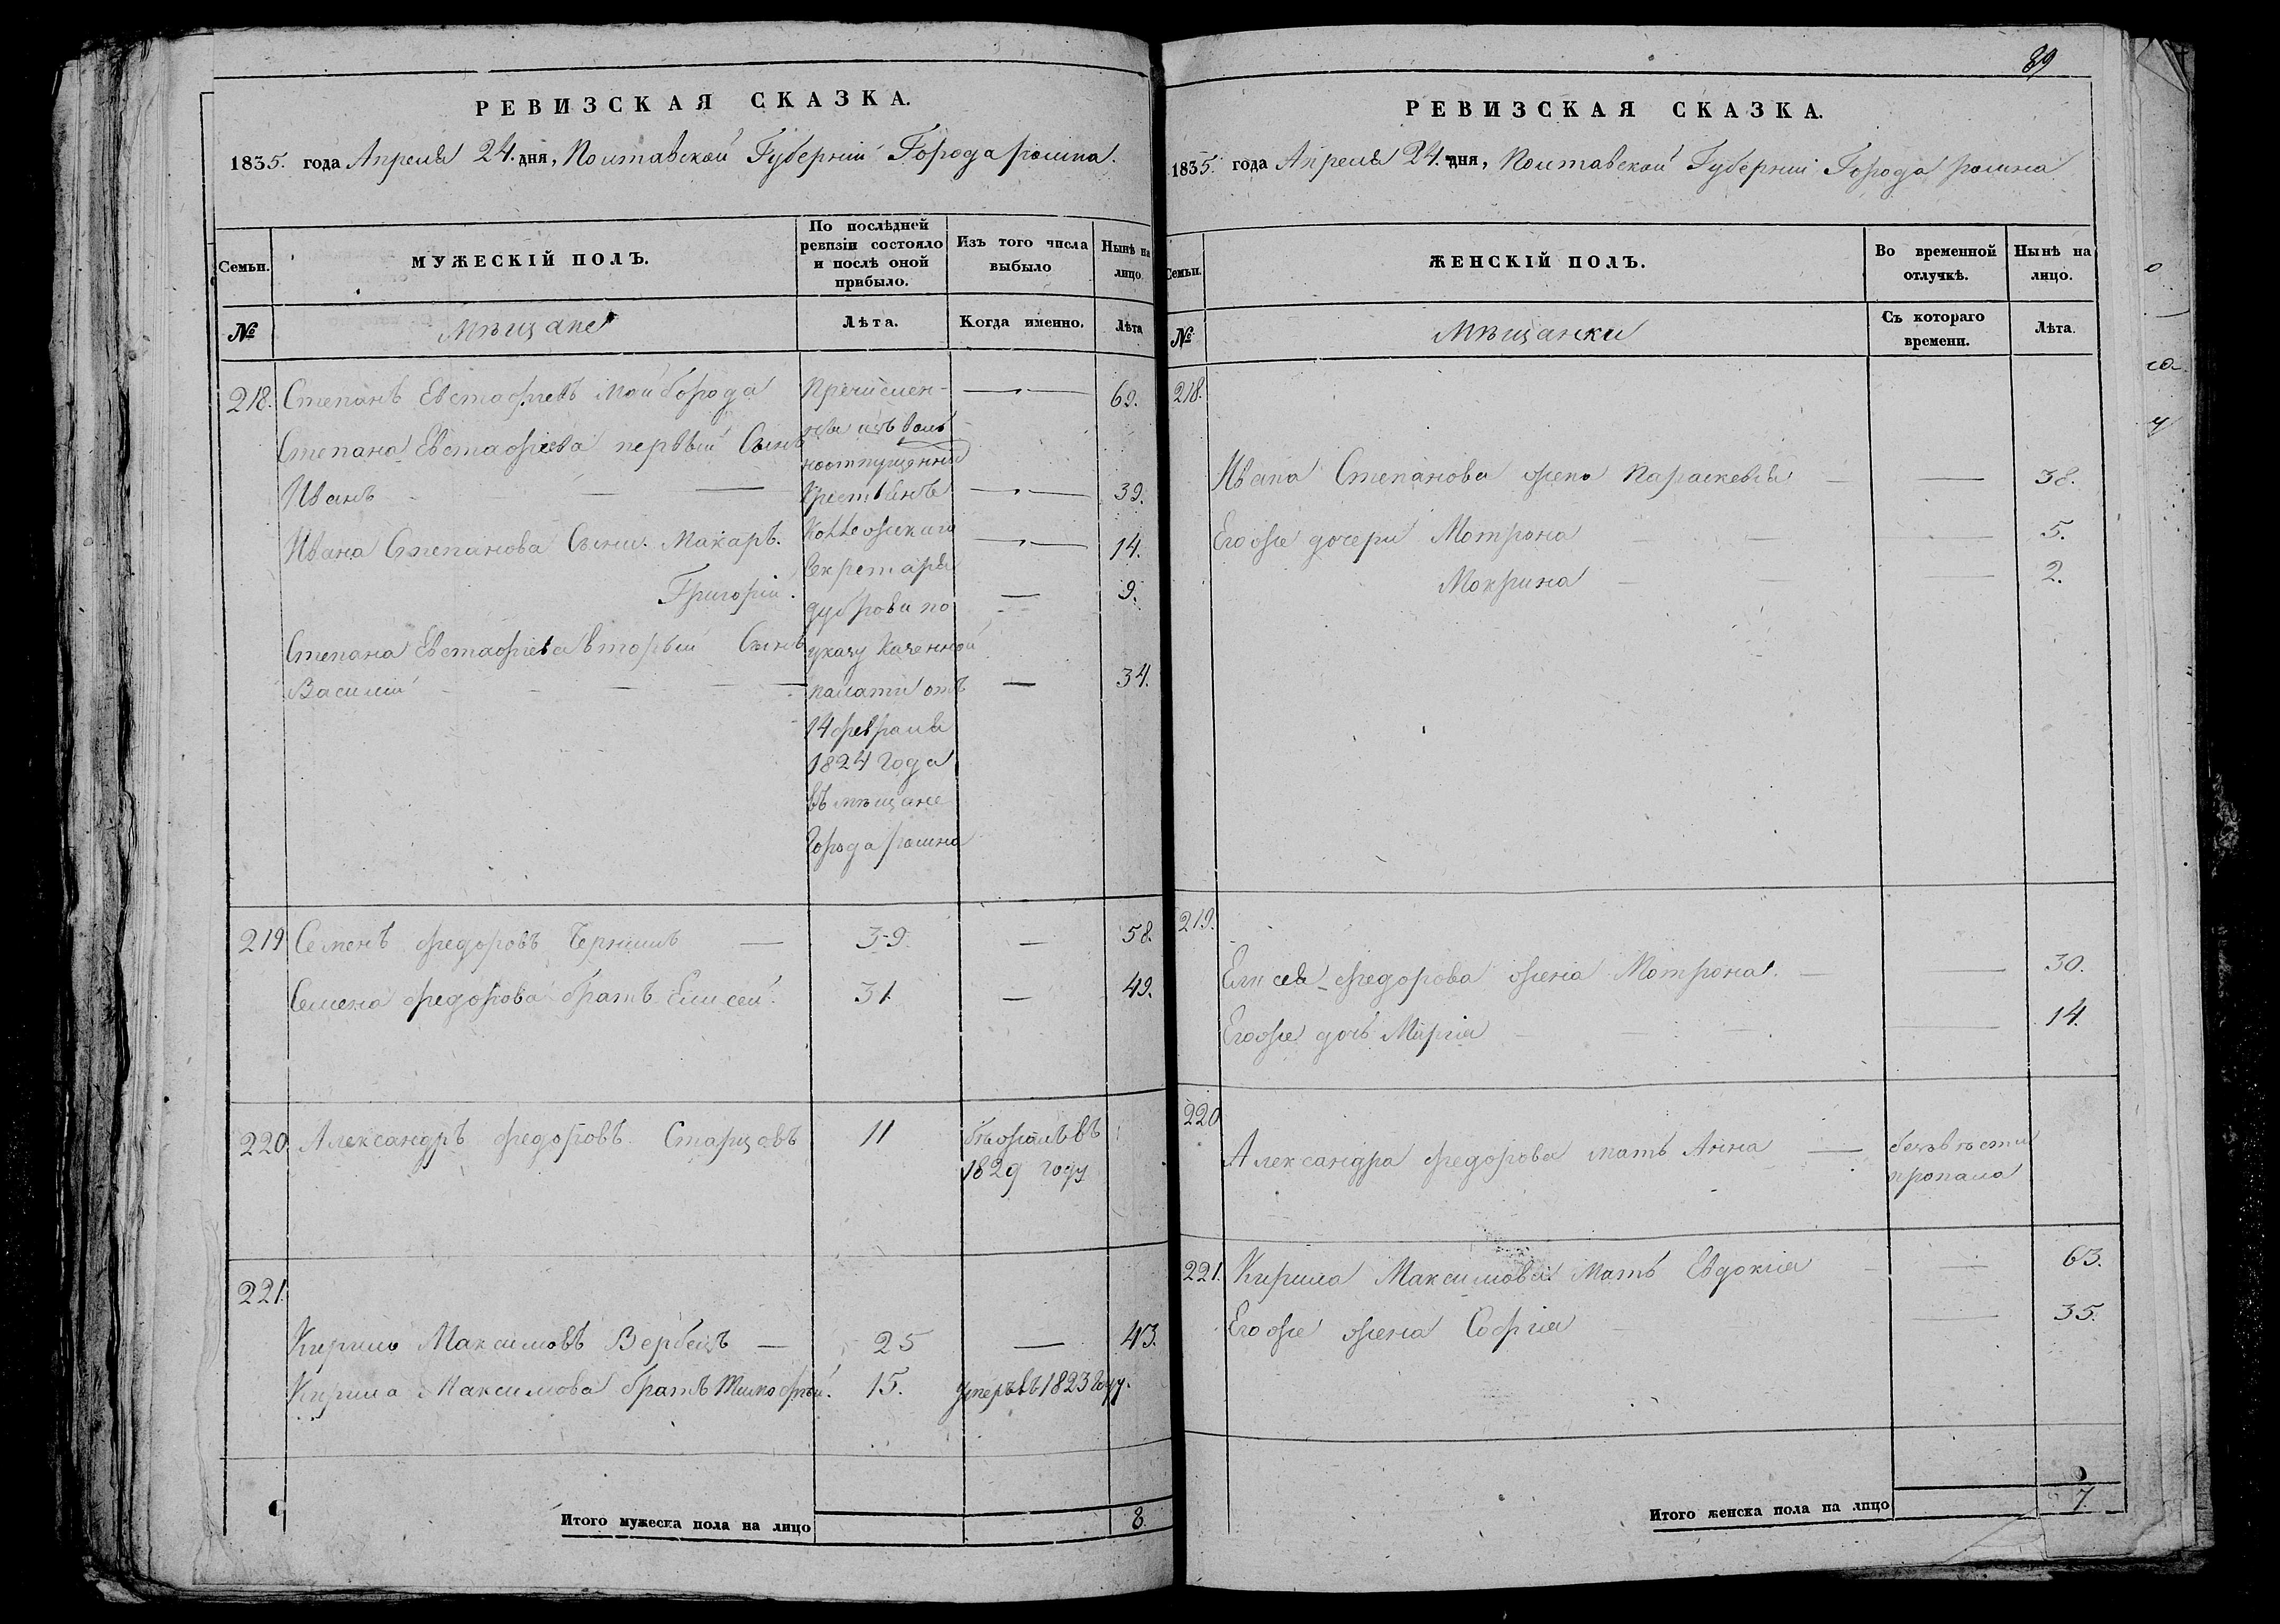 РЕВИЗСКАЯ СКАЗКА.
1835. года Апреля 24. дня, Полтавской Губернии Города ромна.
Семьи.
МУЖЕСКІЙ ПОЛЪ.
По послѣдней ревизіи состояло и послѣ оной прибыло.
Изъ того числа выбыло
Нынѣ на лицо.
№
Мѣщане
Лѣта.
Когда именно.
Лѣта
218. Степанъ Евстафіевъ Майборода
69.
Степана Евстафіева первый Сынъ
Иванъ
39.
Ивана Степанова Сыни. Макаръ.
14.
Григорій.
9.
Степана Евстафіева вторый Сынъ
Василій
34.
Пречислен-
ны изъ воль
ноотпущенных
Крестьянъ
Коллежскаго
Секретаря
дуброви по
указу Казенной
палати отъ
14 февраля
1824 года
въ мѣщане
города ромна
219 Семенъ федоровъ Чернишъ — 39. — 58.
Семена федорова братъ Елисей. 31. — 49.
220. Александръ федоровъ Старцовъ 11 бѣжалъ въ
1829 году
221.
Кирило Максимовъ Вербецъ — 25 — 43.
Кирила Максимова братъ Тимофѣй. 15. умеръ въ 1823 году.
Итого мужеска пола на лицо 8.
89
РЕВИЗСКАЯ СКАЗКА.
1835. года Апреля 24. дня, Полтавской Губернии Города ромна
Семьи.
ЖЕНСКІЙ ПОЛЪ.
Во временной отлучкѣ.
Нынѣ на лицо.
№
Мѣщанки
Съ котораго времени.
Лѣта.
218.
Ивана Степанова жена Параскевія — — 38.
Егоже дочери Мотрона — — 5.
Мокрина — — 2.
219.
Елисея федорова жена Мотрона. — — 30.
Егоже дочь Марія 14.
220
Александра федорова мать Анна — безъ вѣсти
пропала
221. Кирила Максимова мать Евдокія — 63.
Егоже жена Софія 35.
Итого женска пола на лицо 7.